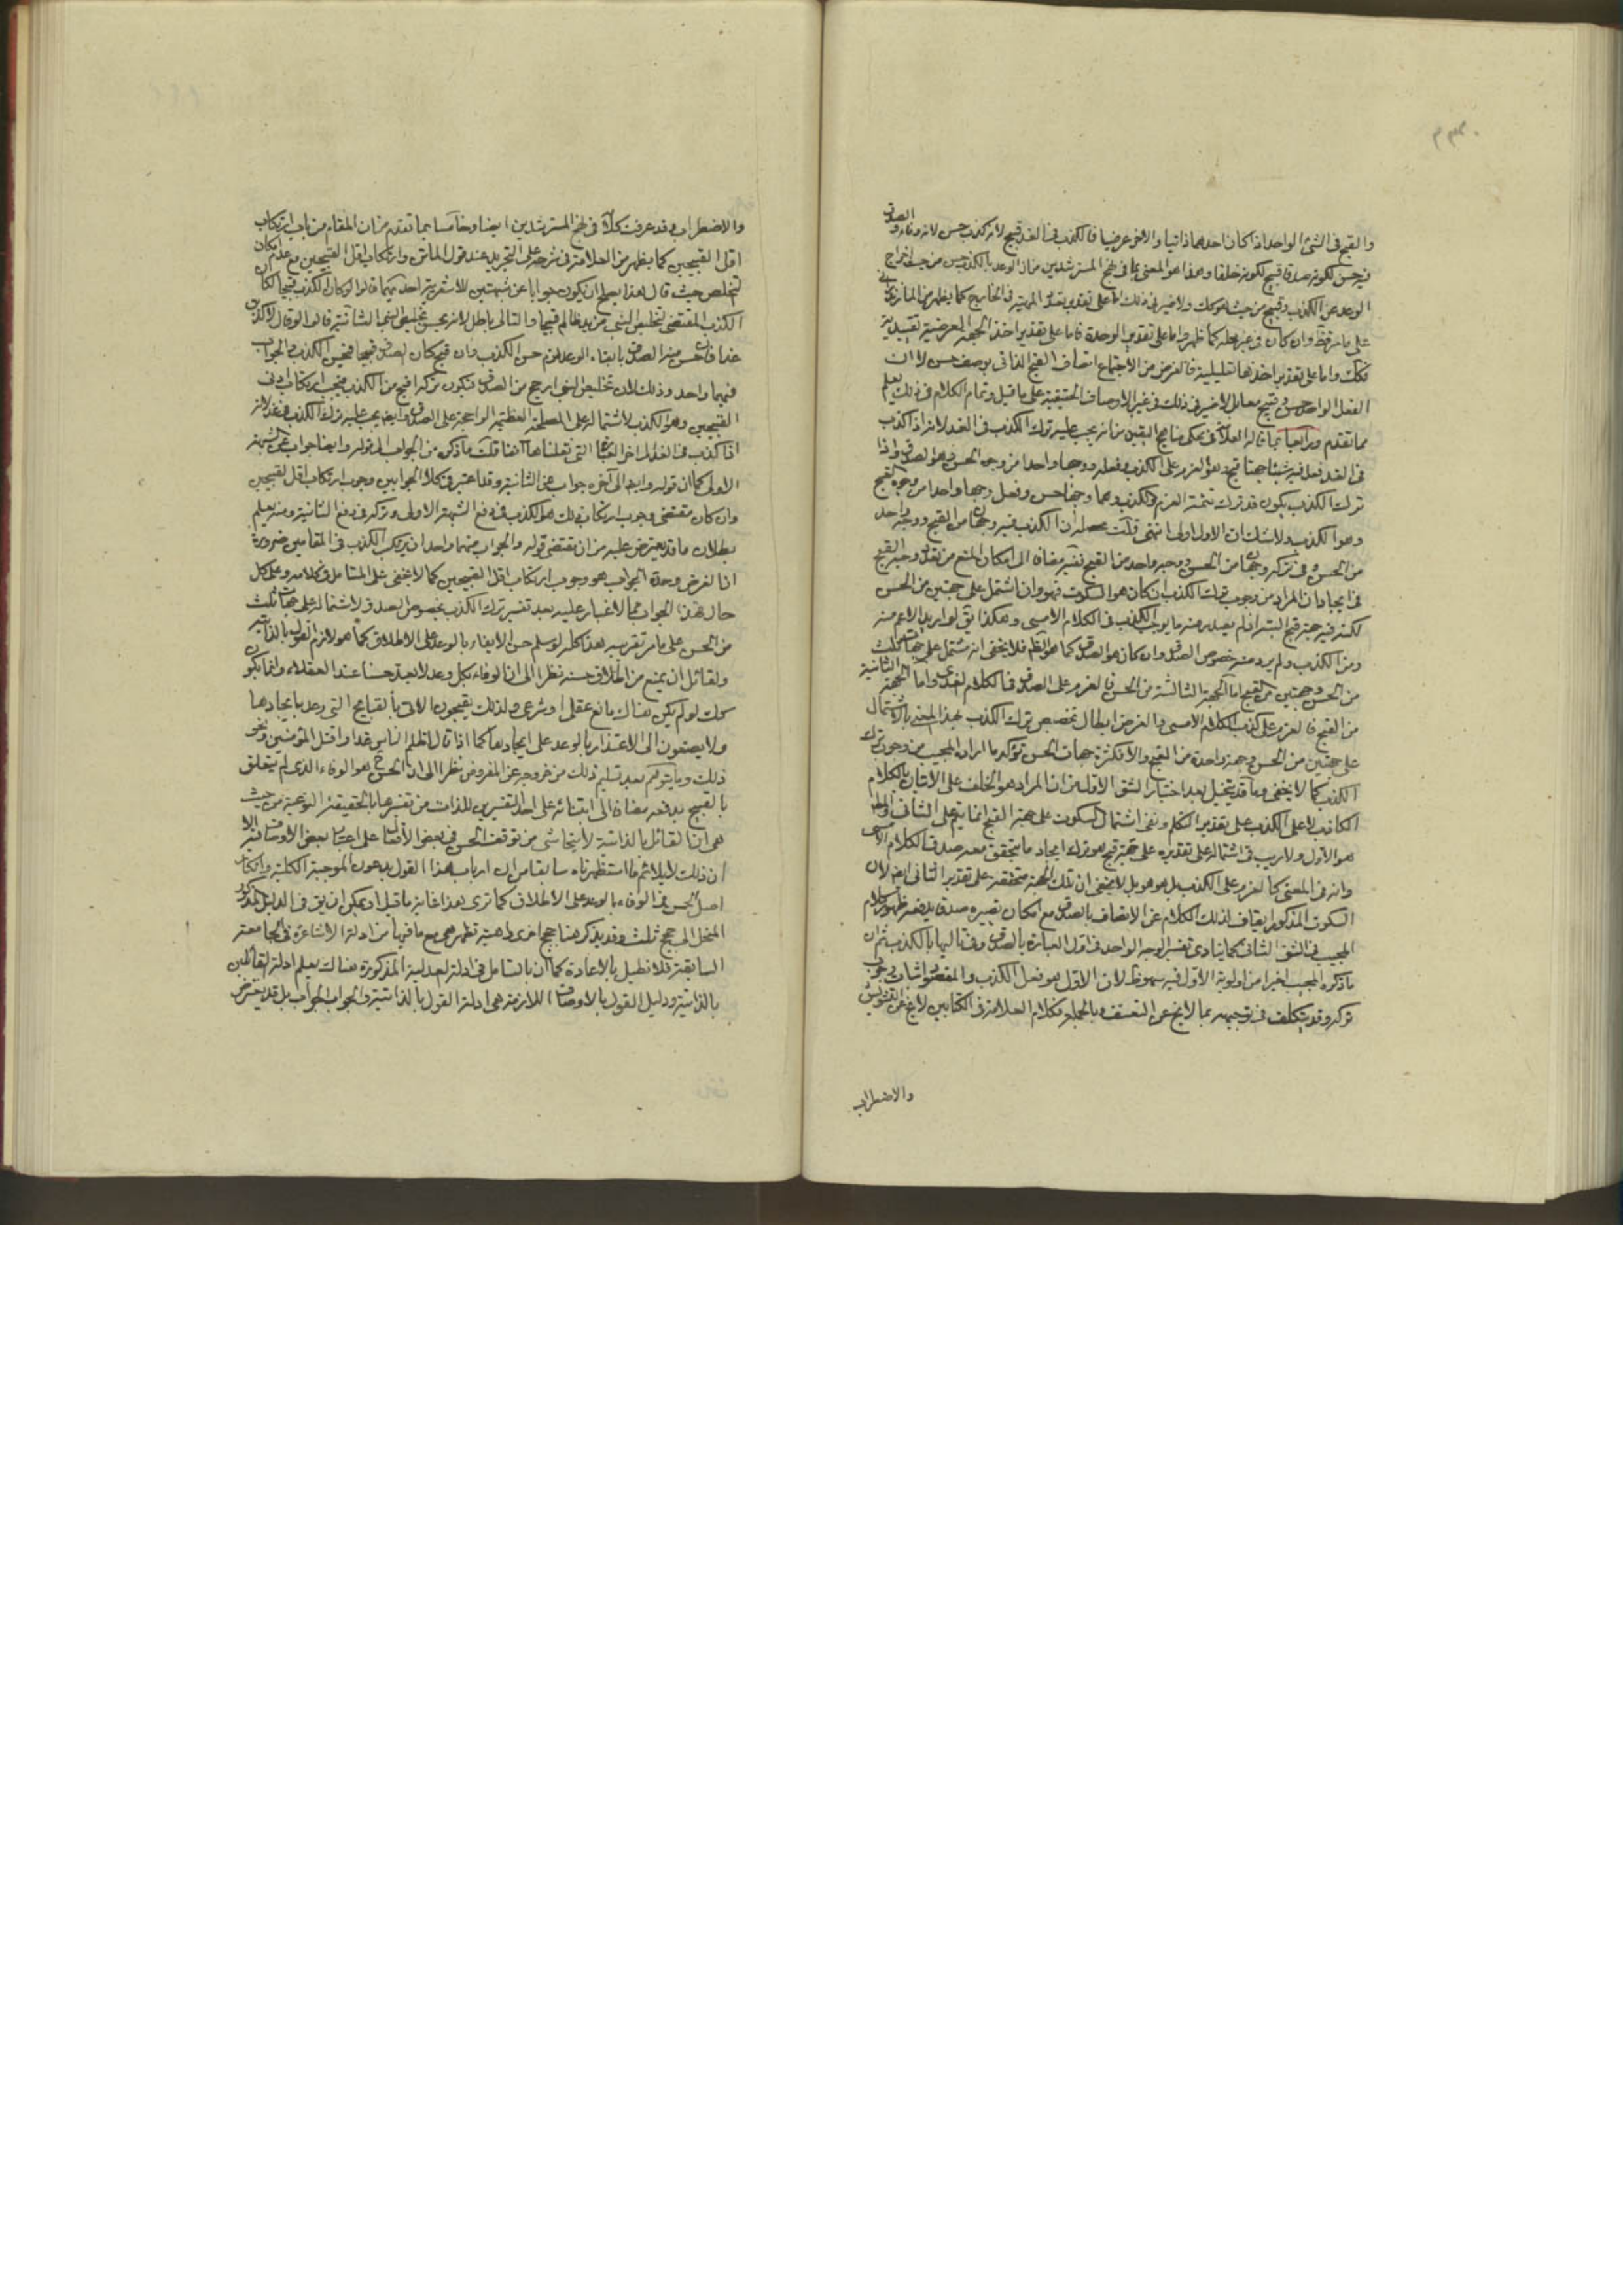 والقبح فى الشئ الواحد اذا كان احدهما ذاتيا والاخر عرضيا فالكذب فى الغد قبيح لانه كذب حسن لانه وفاء والصدق
فيه حسن لكونه صدقا قبيح لكونه خلفا وهذا هو المعنى بما فى نهج المسترشدين من ان الوعد بالكذب حسن من حيث اخراج
الوعد عن الكذب وقبيح من حيث هو كك ولا ضير فى ذلك اما على تقدير تعدد الهوية فى الخارج كما يظهر من
على ما مر وان كان فى غير محله كما ظهر واما على تقدير الوحدة فاما على تقدير اخذ الجهة العرضية تقييدية
فكك واما على تقدير اخذها تعليلية فالغرض من الاجتماع اتصاف القبح الذاتى بوصف حسن لا ان
الفعل الواحد حسن وقبيح معا بل لا ضير فى ذلك فى غير الاوصاف الحقيقية على ما قيل وتمام الكلام فى ذلك يعلم
مما تقدم ورابعا بما قاله العلامة فى محكى مناهج اليقين من انه يجب عليه ترك الكذب فى الغد لانه اذا كذب
فى الغد فعل فيه شيئا جهتا قبح وهو العزم على الكذب وفعله ووجها واحدا من وجه الحسن وهو الصدق واذا
ترك الكذب يكون قد ترك تتمة العزم والكذب وهما وجها حسن وفعل وجها واحدا من وجوه القبح
وهو الكذب ولا شك ان الاول اولى انتهى قلت محصله ان الكذب فيه وجهان من القبح ووجه واحد
من الحسن وفى تركه وجهان من الحسن ووجه واحد من القبح
فى ايجاد ان المراد من وجوب ترك الكذب ان كان هو السكوت فهو وان اشتمل على جهتين من الحسن
لكنه فيه جهة قبح البتة اذ لم يصدر منه ما يوجب الكذب فى الكلام الامسى وهكذا يق لو اريد الاعم منه
ومن الكذب ولم يرد منه خصوص الصدق وان كان هو الصدق كما هو الظم فلا يخفى انه مشتمل على جهات ثلث
من الحسن وجهتين من القبح اما الجهة الثالثة من الحسن فالعزم على الصدق فى الكلام الغدى واما الجهة الثانية
من القبح فالعزم على كذب الكلام الامسى والغرض ابطال تخصيص ترك الكذب بهذا المعنى بالاشتمال
على جهتين من الحسن وجهة واحدة من القبح والا فكثرة جهات الحسن تؤكد ما اراده المجيب من وجوب ترك
الكذب كما لا يخفى وما قد يتخيل بعد اختيار الشق الاول من ان المراد هو الخلف على الاتيان بالكلام
الكاذب لا على الكذب على تقدير التكلم ونفى اشتمال السكوت على جهة القبح انما يتم على الثانى والظ
هو الاول ولا ريب فى اشتماله على تقديره على جهة قبح هو ترك ايجاد ما يتحقق معه صدق الكلام الامسى
وانه فى المعنى كالعزم على الكذب بل هو هو بل لا يخفى ان تلك الجهة متحققة على تقدير الثانى ايضا لان
السكوت المذكور ايقاف لذلك الكلام عن الاتصاف بالصدق مع امكان تصييره صدقا يدفعه ظهور كلام
المجيب فى الشق الثانى كما ينادى تفسير الوجه الواحد فى اول العبارة بالصدق وفى تاليها بالكذب ثم ان
ما ذكره المجيب اخيرا من اولوية الاول فيه سهو ظ لان الاول هو فعل الكذب والمقصود اثبات وجوب
تركه وقد يتكلف فى توجيهه بما لا يخ عن التعسف وبالجملة فكلام العلامة فى الكتابين لا يخ عن التشويش
والاضطراب
والاضطراب وقد عرفت كلامه فى نهج المسترشدين ايضا وخامسا بما تقدم من ان المقام من باب ارتكاب
اقل القبيحين كما يظهر من العلامة فى شرحه على التجريد عند قول الماتن وارتكاب اقل القبيحين مع امكان
التخلص حيث قال هذا يصلح ان يكون جوابا عن شبهتين للاشعرية احديهما قالوا لو كان الكذب قبيحا لكان
الكذب المقتضى لتخليص النبى من يد ظالم قبيحا والتالى باطل لانه يحسن تخليص النبى الثانية قالوا لو قال لاكذبن
غدا فان حسن منه الصدق بايفاء الوعد لزم حسن الكذب وان قبح كان الصدق قبيحا فيحسن الكذب والجواب
فيهما واحد وذلك لان تخليص النبى ارجح من الصدق فيكون تركه اقبح من الكذب فيجب ارتكاب ادنى
القبيحين وهو الكذب لاشتماله على المصلحة العظيمة الراجحة على الصدق وايضا يجب عليه ترك الكذب فى غد لانه
اذا كذب فى الغد الى اخر العبارة التى نقلناها آنفا قلت ما ذكره من الجواب الى قوله وايضا جواب عن الشبهة
الاولى كما ان قوله وايضا الى آخره جواب عن الثانية وقد اعتبر فى كلا الجوابين وجوب ارتكاب اقل القبيحين
وان كان مقتضى وجوب ارتكاب ذلك هو الكذب فى دفع الشبهة الاولى وتركه فى دفع الثانية ومنه يعلم
بطلان ما قد يعترض عليه من ان مقتضى قوله والجواب منهما واحد ان يرتكب الكذب فى المقامين ضرورة
ان الغرض وحدة الجواب هو وجوب ارتكاب اقل القبيحين كما لا يخفى على المتامل فى كلامه وعلى كل
حال فهذا الجواب مما لا غبار عليه بعد تفسير ترك الكذب بخصوص الصدق لاشتماله على جهات ثلث
من الحسن على ما مر تقريره هذا كله لو سلم حسن الايفاء بالوعد على الاطلاق كما هو لازم القول بالذاتية
ولقائل ان يمنع من اطلاق حسنه نظرا الى ان الوفاء بكل وعد لا يعد حسنا عند العقلاء وانما يكون
كك لو لم يكن هناك مانع عقلى او شرعى ولذلك يقبحون الاتى بالقبايح التى وعد بايجادها
ولا يصغون الى الاعتذار بالوعد على ايجادها كما اذا قال لاظلم الناس غدا واقتل المؤمنين ونحو
ذلك وما يتوهم بعد تسليم ذلك من خروجه عن المفروض نظرا الى ان الحسن ح هو الوفاء الذى لم يتعلق
بالقبيح يدفعه مضافا الى ابتنائه على احد التفسيرين للذات من تفسيرها بالحقيقة النوعية من حيث
هى ان القائل بالذاتية لا يتحاشى من توقف الحسن فى بعض الافعال على اعتبار بعض الاوصاف فيه الا
ان ذلك لا يلائم ما استظهرناه سابقا من ان ارباب هذا القول يدعون الموجبة الكلية وانكار
اصل الحسن فى الوفاء بالوعد على الاطلاق كما ترى هذا غاية ما قيل او يمكن ان يق فى الدليل المذكور
المنحل الى حجج ثلث وقد يذكر هنا حجج اخرى واهية تظهر هى مع ما فيها من ادلة الاشاعرة فى الجامعة
السابقة فلا نطيل بالاعادة كما ان بالتامل فى ادلة العدلية المذكورة هناك يعلم ادلة القائلين
بالذاتية ودليل القول بالاوصاف اللازمة هى ادلة القول بالذاتية والجواب الجواب بل قد يعترض